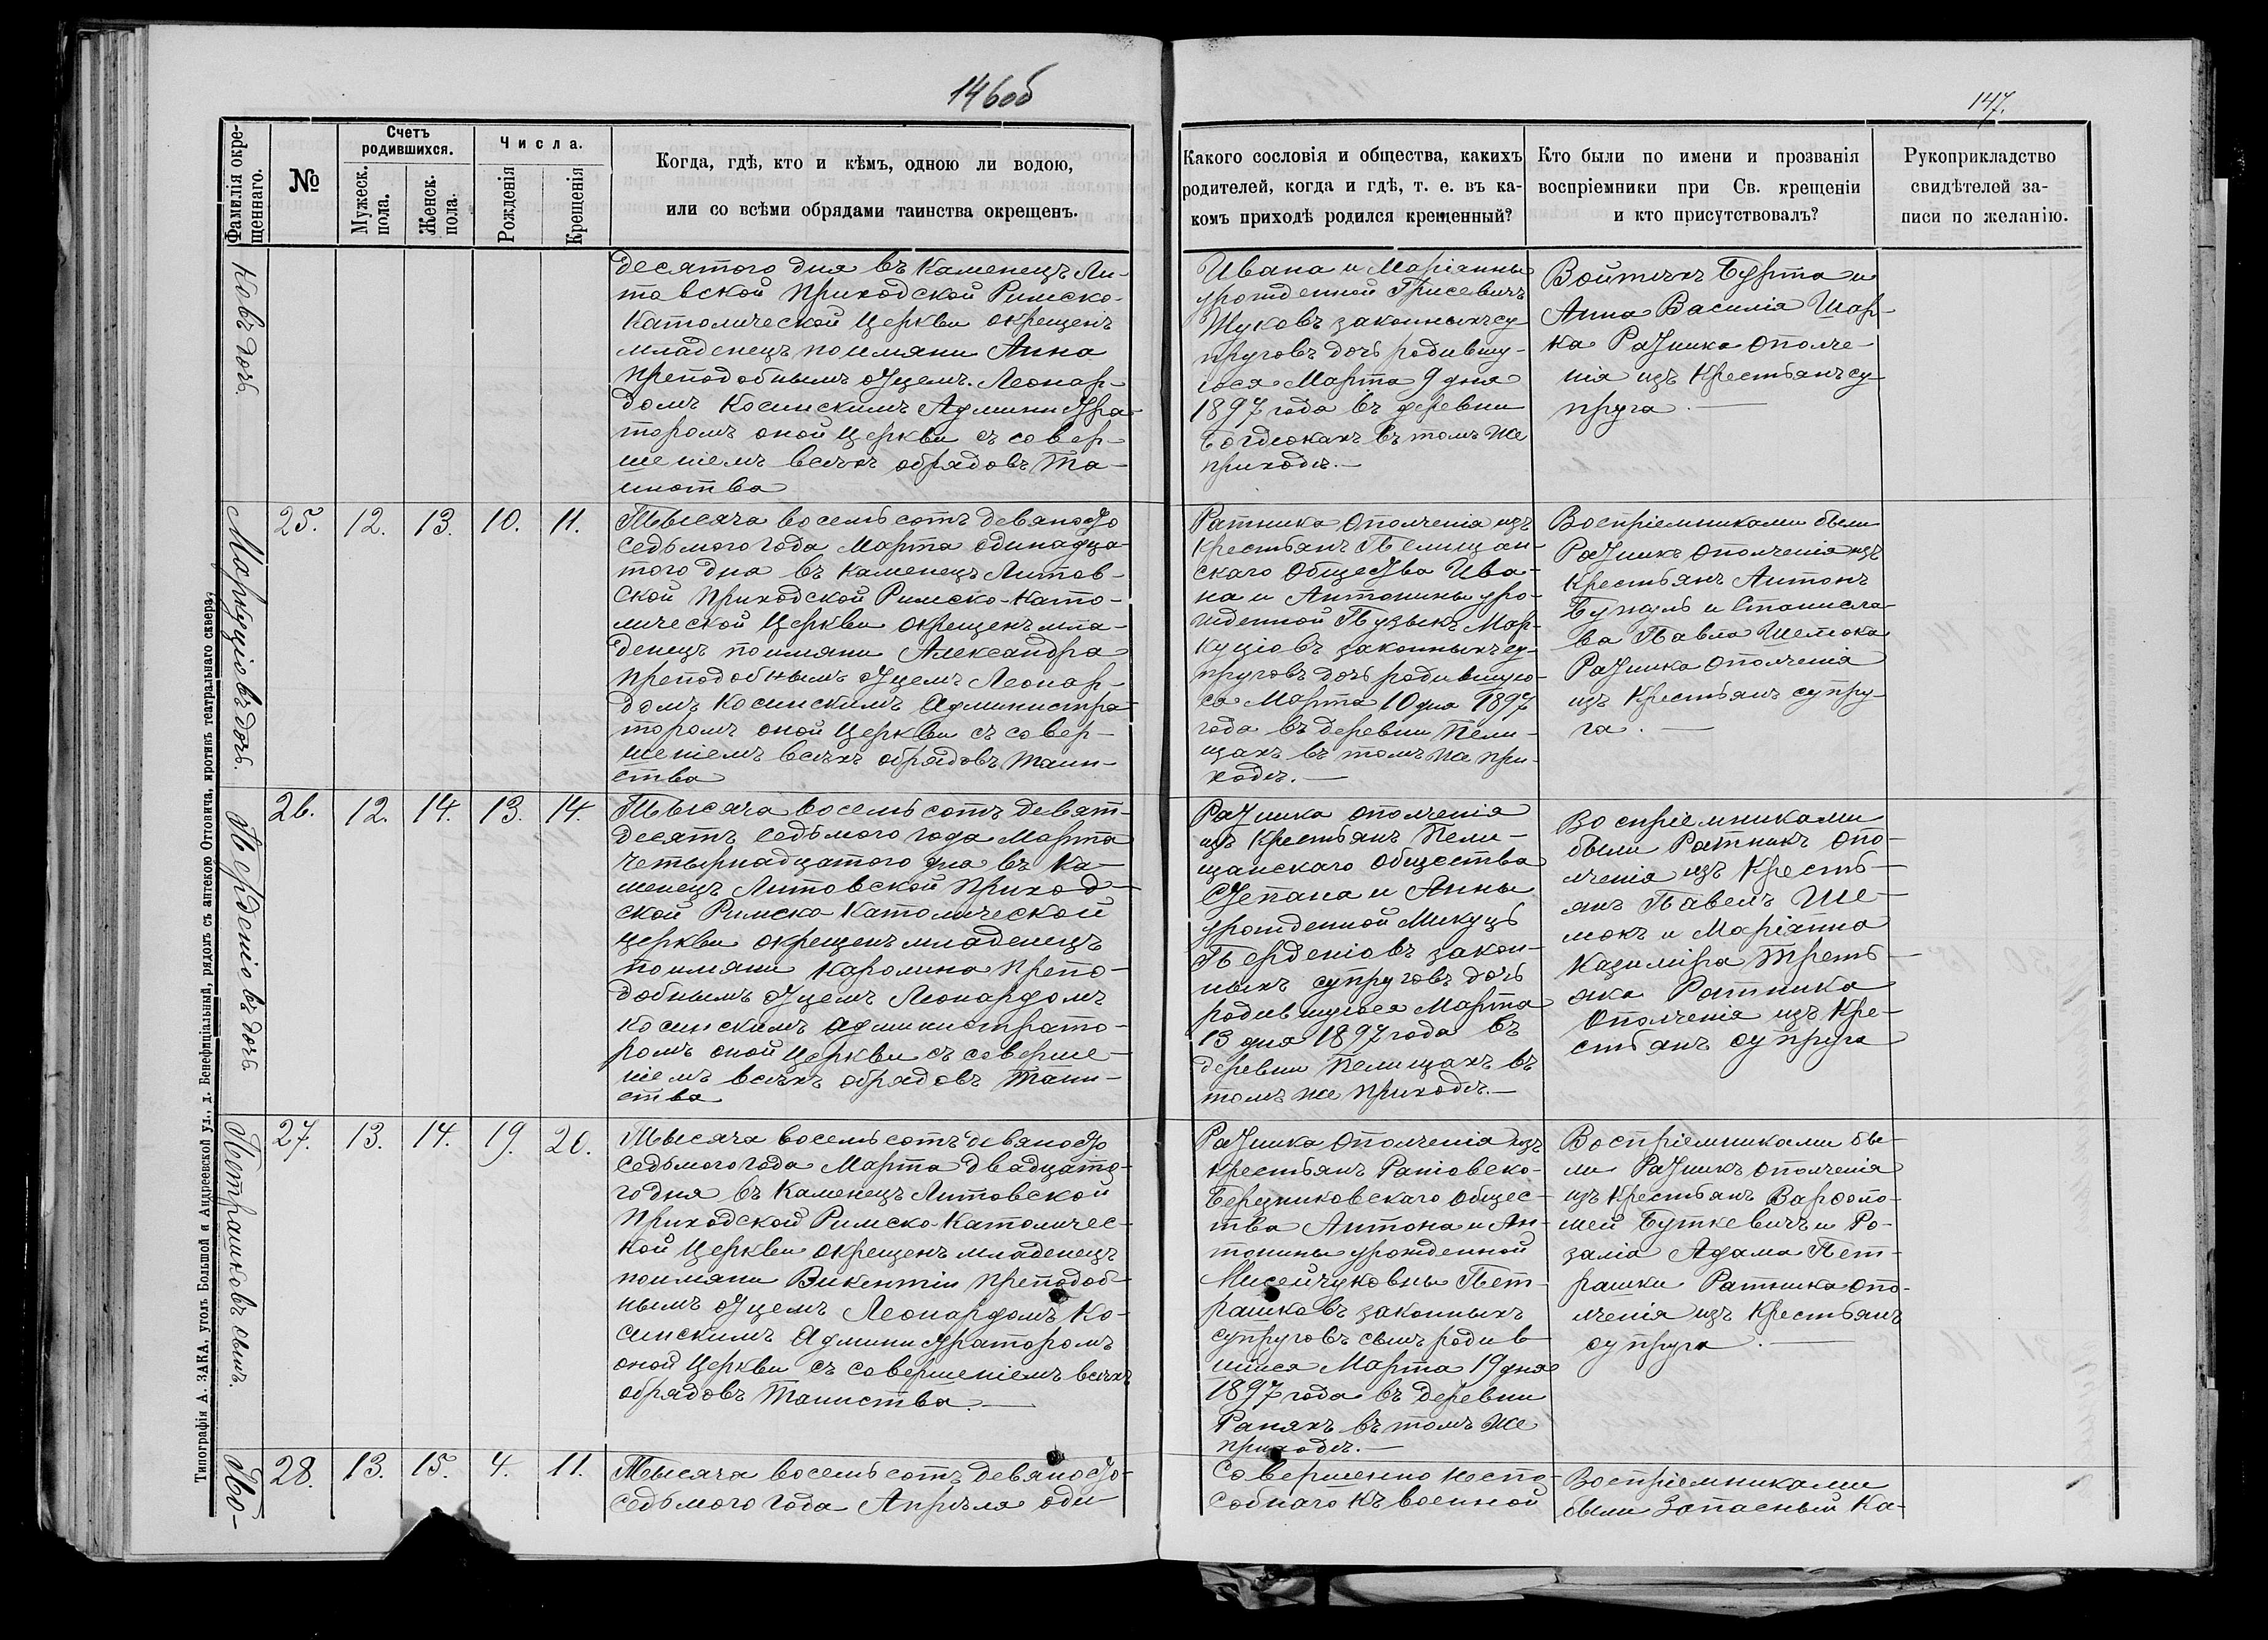 146об
147.
Фамилія окре-
щеннаго.
№
Счетъ
родившихся.
Мужеск.
пола.
Женск.
пола.
Числа.
Рожденія
Крещенія
Когда, гдѣ, кто и кѣмъ, одною ли водою,
или со всѣми обрядами таинства окрещенъ.
Какого сословія и общества, какихъ
родителей, когда и гдѣ, т. е. въ ка-
комъ приходѣ родился крещенный?
Кто были по имени и прозванія
воспріемники при Св. крещеніи
и кто присутствовалъ?
Рукоприкладство
свидѣтелей за-
писи по желанію.
дочь.
десятого дня въ Каменецъ Ли-
товской Приходской Римско-
Католической Церкви окрещенъ
младенецъ поимяни Анна
Преподобнымъ Отцемъ Леонар-
домъ Косинскимъ Администра-
торомъ оной Церкви съ совер-
шеніемъ всѣхъ обрядовъ Та-
инства
Ивана и Маріанны
урожденной Грисевичъ
Жуковъ законныхъ су
пруговъ дочь родившу-
юся Марта 9 дня
1897 года въ деревни
Богдюкахъ въ томъ же
приходѣ.—
Войтѣхъ Бурта и
Анна Василія Шар-
ка Ратника Ополче-
нія изъ Крестьянъ су-
пруга.—
Маркуціовъ дочь.
25.
12.
13.
10.
11.
Тысяча восемьсотъ девяносто
седьмого года Марта одинадца-
того дня въ Каменецъ Литов-
ской Приходской Римско-Като-
лической Церкви окрещенъ мла-
денецъ поимяни Александра
Преподобнымъ Отцемъ Леонар-
домъ Косинскимъ Администра
торомъ оной Церкви съ совер-
шеніемъ всѣхъ обрядовъ Таин-
ства
Ратника Ополченія изъ
Крестьянъ Пелищан-
скаго Общества Ива-
на и Антонины уро-
жденной Пузыкъ Мар-
куціовъ законныхъ су-
пруговъ дочь родившую-
ся Марта 10 дня 1897
года въ деревни Пели-
щахъ въ томъ же при-
ходѣ.—
Воспріемниками были
Ратникъ Ополченія изъ
Крестьянъ Антонъ
и Станисла-
ва Павла Шемока
Ратника Ополченія
изъ Крестьянъ супру-
га.—
Пердепіовъ дочь
26.
12.
14.
13.
14.
Тысяча восемьсотъ девят-
десятъ седьмого года Марта
четырнадцатого дня въ Ка-
менецъ Литовской Приход-
ской Римско Католической
церкви окрещенъ младенецъ
поимяни Каролина Препо-
добнымъ Отцемъ Леонардомъ
Косинскимъ Администрато-
ромъ оной Церкви съ соверше-
ніемъ всѣхъ обрядовъ Таин-
ства
Ратника ополченія
изъ Крестьянъ Пели-
щанскаго Общества
Степана и Анны
урожденной Микуць
законныхъ супруговъ дочь
родившуюся Марта
13 дня 1897 года въ
деревни Пелищахъ въ
томъ же приходѣ.—
Воспріемниками
были Ратникъ Опо-
лченія изъ Кресть-
янъ Павелъ Ше-
мокъ и Маріанна
Казиміра Треть-
яка Ратника
Ополченія изъ Кре-
стьянъ супруга
Петрашковъ сынъ.
27.
13.
14.
19.
20.
Тысяча восемьсотъ девяносто
седьмого года Марта двадцато-
го дня въ Каменецъ Литовской
Приходской Римско-Католичес-
кой Церкви окрещенъ младенецъ
поимяни Викентій Преподоб-
нымъ Отцемъ Леонардомъ Ко-
синскимъ Администраторомъ
оной Церкви съ совершеніемъ всѣхъ
обрядовъ Таинства.—
Ратника Ополченія изъ
крестьянъ Раповско-
Березниковскаго Общес-
тва Антона и Ан-
тонины урожденной
Мисейчуковны Пет-
рашковъ законныхъ
супруговъ сынъ родив
шійся Марта 19 дня
1897 года въ деревни
Рапяхъ въ томъ же
приходѣ.—
Воспріемниками бы-
ли Ратникъ ополченія
изъ Крестьянъ Варфоло-
мей Буткевичъ и Ро-
залія Адама Пет-
рашки Ратника Опо-
лченія изъ Крестьянъ
супруга.—
28.
13.
15.
4.
11.
Тысяча восемьсотъ девяносто-
седьмого года Апрѣля оди-
Совершенно неспо-
собнаго къ военной
Воспріемниками
были Запасный Ка-
Типографія А. ЗАКА, уголъ Большой и Андреевской ул., д. Бенефиціальный, рядомъ съ аптекою Оттовича, кротивъ театральнаго сквера.